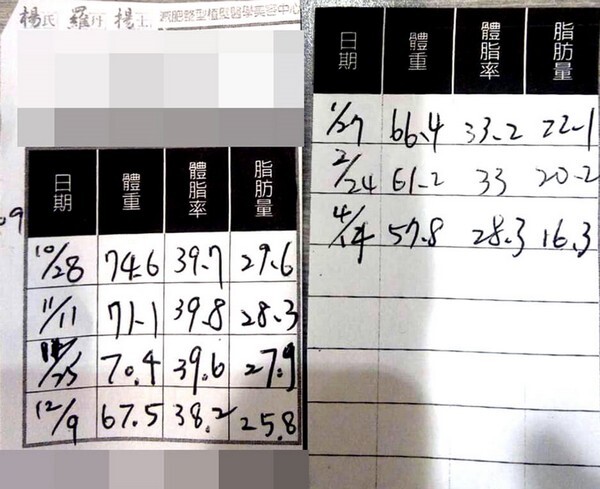 楊氏 羅玗 楊玉 減肥整型植髮醫學美容中心
日期 體重 體脂率 脂肪量
10/28 74.6 39.7 29.6
11/11 71.1 39.8 28.3
11/25 70.4 39.6 27.9
12/9 67.5 38.2 25.8
日期 體重 體脂率 脂肪量
1/27 66.4 33.2 22.1
2/24 61.2 33 20.2
4/14 57.8 28.3 16.3